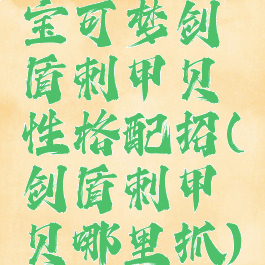 宝可梦剑
盾刺甲贝
性格配招(
剑盾刺甲
贝哪里抓)